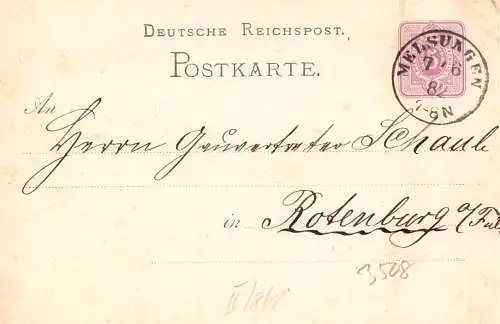 DEUTSCHE REICHSPOST.
POSTKARTE.
MELSUNGEN
7 6
82
7-8N
An
Herrn Gauvertreter Schaub
in Rotenburg a/Ful
3508
II/81